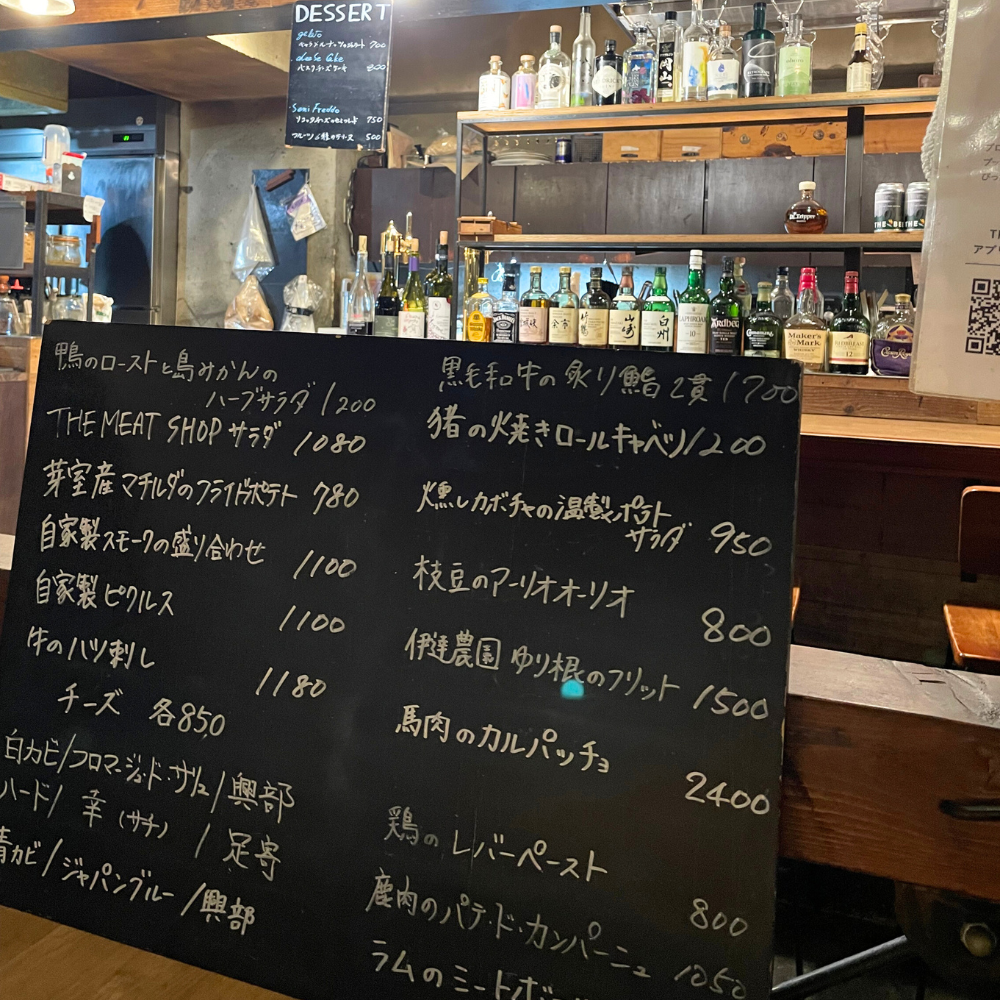 DESSERT
gelato
700
cheese cake
バスクチーズケーキ 800
Semi Freddo
750
500
鴨のローストと島みかんの
ハーブサラダ 1200
THE MEAT SHOP サラダ 1080
芽室産マチルダのフライドポテト 780
自家製スモークの盛り合わせ 1100
自家製ピクルス 1100
牛のハツ刺し 1180
チーズ 各850
白カビ/フロマージュ・ド・ザリュ/興部
ハード/幸(サチ)/足寄
青カビ/ジャパンブルー/興部
黒毛和牛の炙り鮨2貫1700
猪の焼きロールキャベツ1200
燻しカボチャの温製ポテト
サラダ 950
枝豆のアーリオオーリオ
800
伊達農園 ゆり根のフリット 1500
馬肉のカルパッチョ
2400
鶏のレバーペースト
800
鹿肉のパテ・ド・カンパーニュ 1050
ラムのミートボ
岡山
余市
竹鶴
山崎
白州
LAPHROAIG
10
Ardbeg
Maker's
Mark
REDBREAST
12
Crown Royal